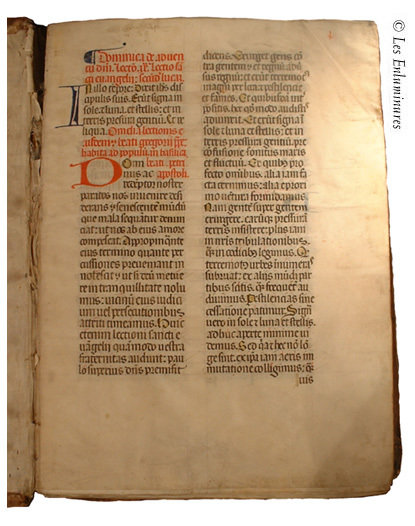 Dominica de adven
In illo tēpore: Dixit ihs dis
cipulis suis. Erūt signa in
sole & luna. et stellis: et in
terris pressura gētiū. Et re
liqua. Omelia lectionis e
iusdem: beati gregorii pape
habita ad populum in basilica
beati petri
Dominus ac apostoli.
redemptor noster
paratos nos invenire desi
derans: et senescentē mūdū
que mala sequātur denun
ciat: ut nos ab eius amore
compescat. Appropinquāte
eius termino quante per
cussiones preveniant in
notescit: ut si deū metue
re in tranquilitate nolu
mus: vicinum eius iudici
um vel percussionibus
attriti timeamus. Huic
etenim lectioni sancti e
vangelii quā modo vestra
fraternitas audivit: pau
lo superius dns premisit
dicens. Surget gens con
tra gentem: et regnū adv
sus regnū: et erūt terremot
magni per loca: et pestilencie
et fames. Et quibusdā int
positis: hec que modo audistis
adiunxit. Erūt signa in
sole & luna et stellis: et in
terris pressura gentiū: pre
confusione sonitus maris
et fluctuum. Ex quibus pro
fecto omnibus: alia iam fa
cta cernimus: alia e proxi
mo ventura formidamus.
Nam gentē super gentem
exurgere: earumque pressurā
terris insistere: plus iam
in nostris tribulationibus
quam in codicibus legimus. Quod
terremotus urbes innumeras
subruat: ex aliis mundi par
tibus scitis. quam frequēter au
divimus. Pestilencias sine
cessatione patimur. Signa
vero in sole & luna et stellis.
adhuc aperte minime vi
demus. Sed quia et hec nō lō
ge sint. ex ipsa iam aeris im
mutatione colligimus:
© Les Enluminures